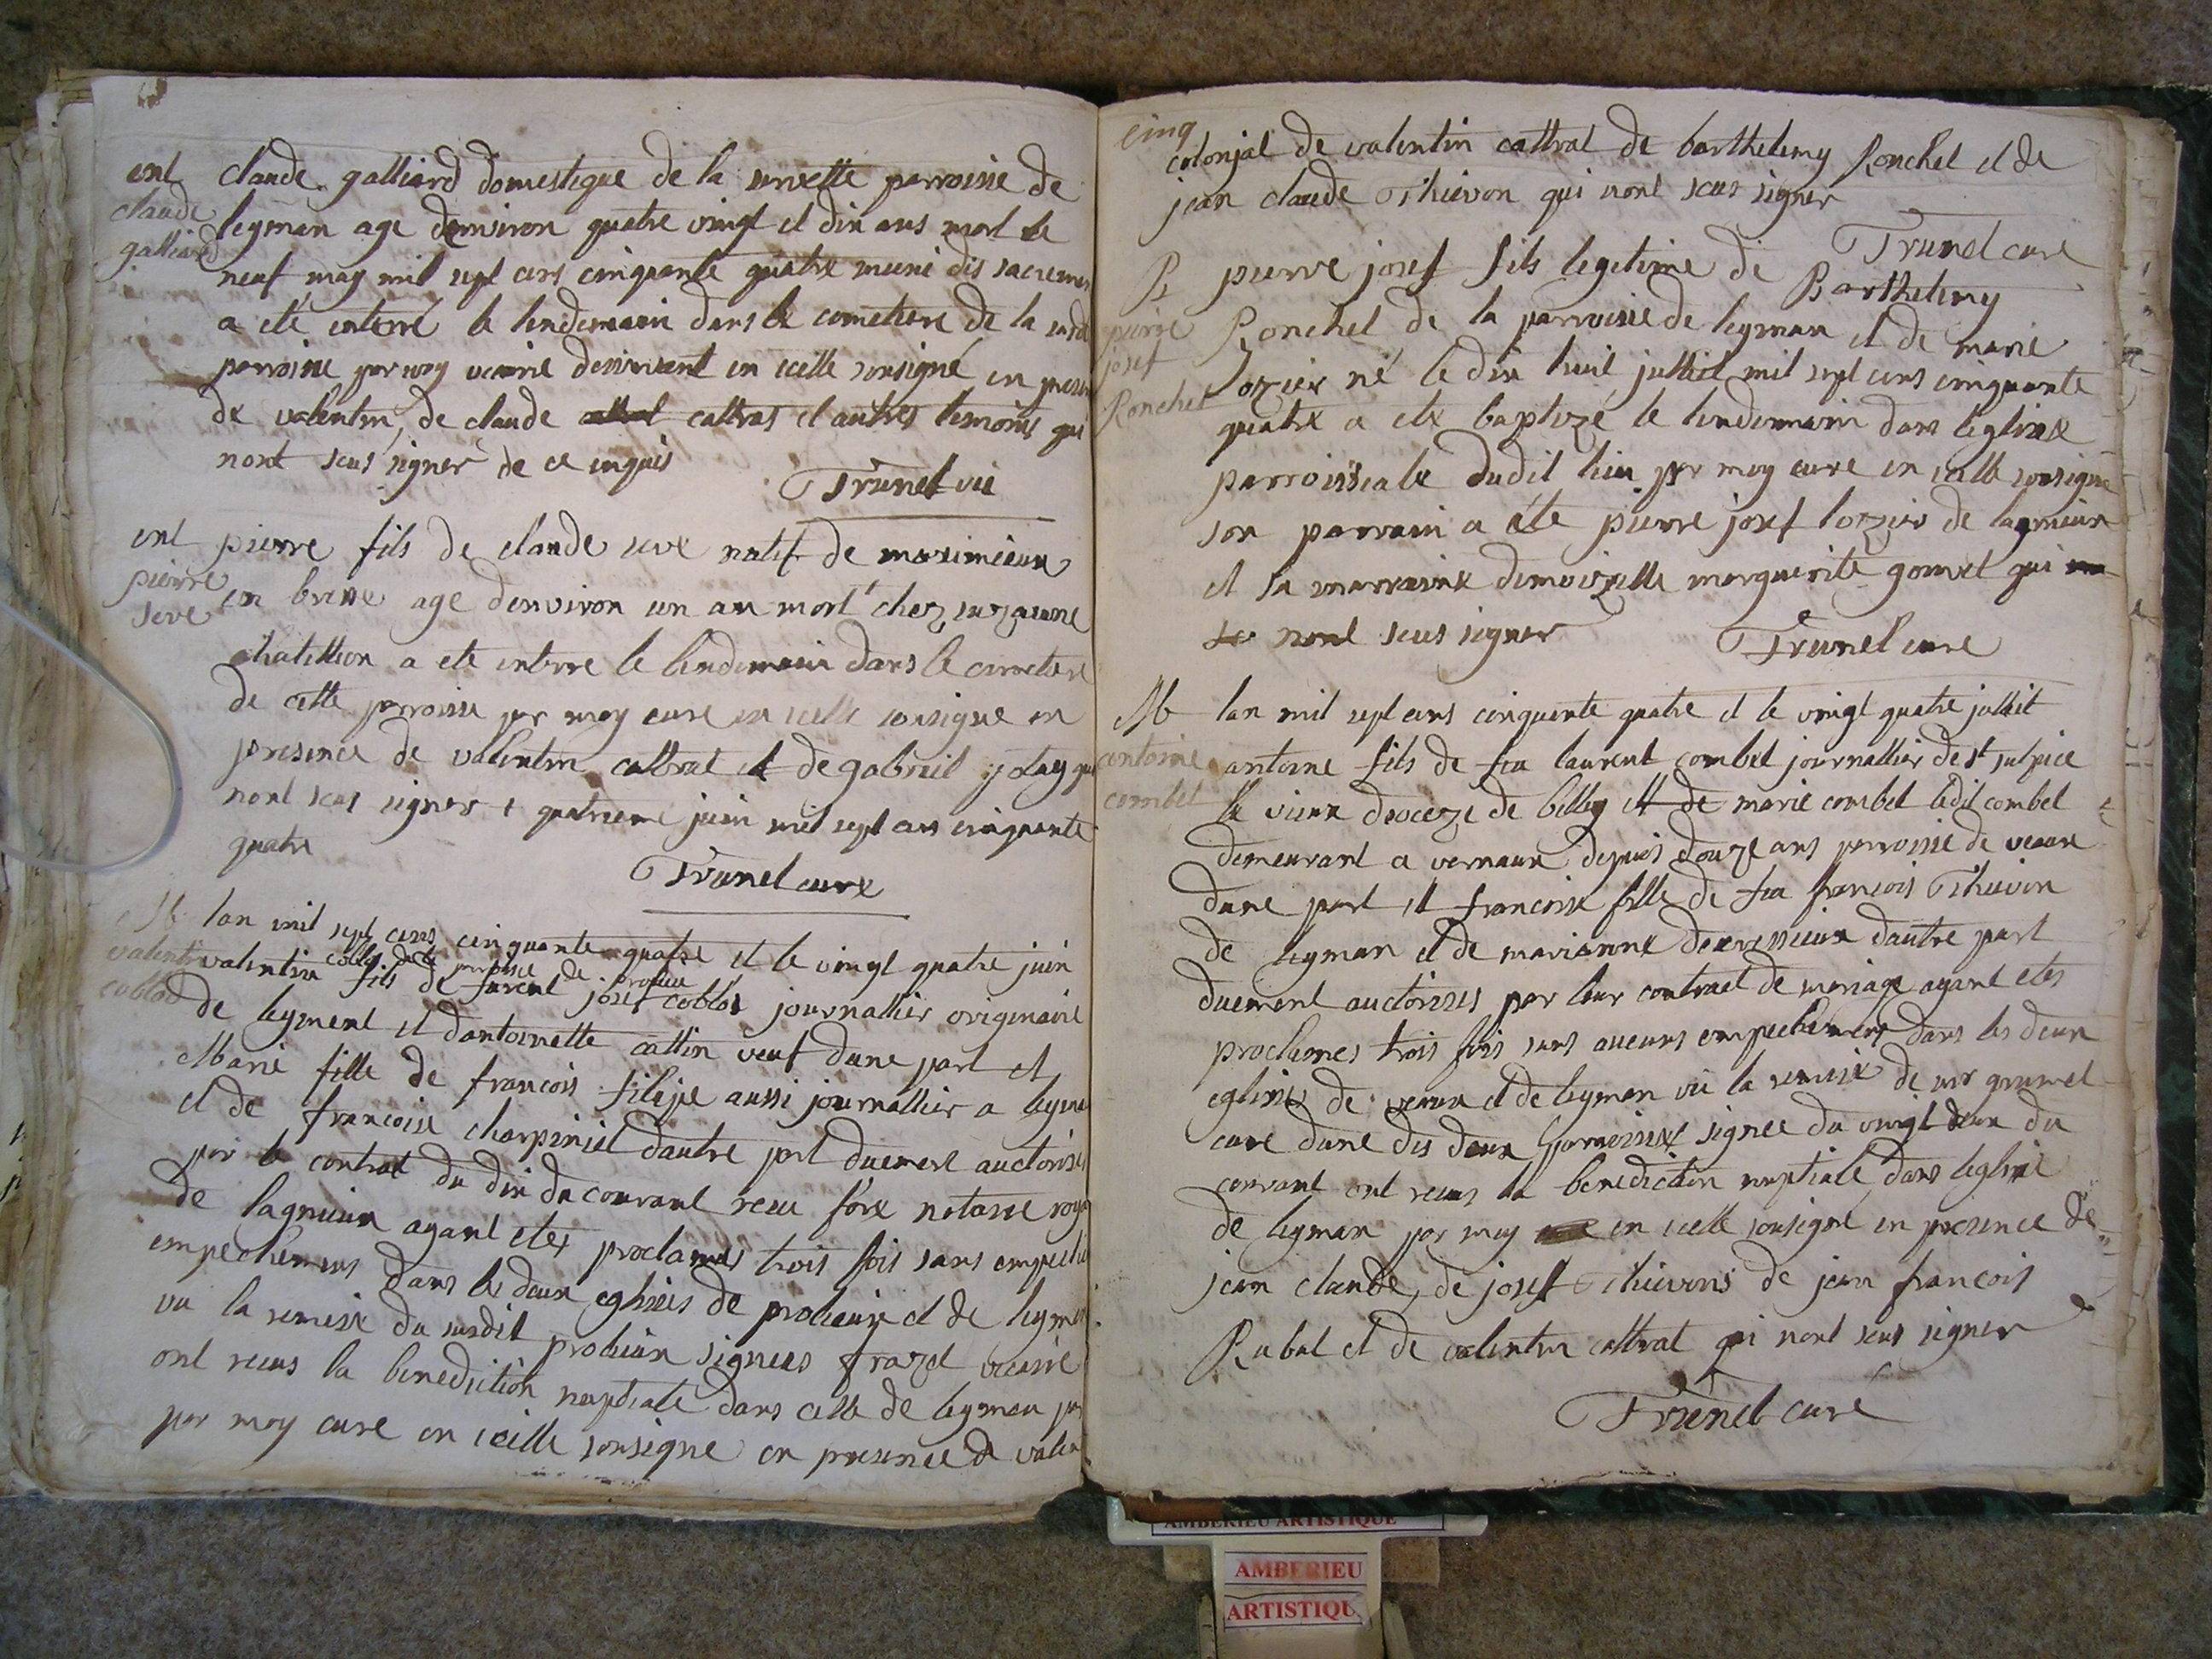 ent claude galliard domestique de la servette parroisse de
claude
galliard
leyman age denviron quatre vingt et dix ans mort le
neuf may mil sept cens cinquante quatre muni des sacremen
a eté enterré le lendemain dans le cimetiere de la susd
parroisse par moy vicaire desservant en icelle sousigné en presen
de valentin, de claude cattras et autres temoins qui
nont sceus signer de ce enquis
Trunel vic
ent pierre fils de claude seve natif de maximieux
pierre
seve
en bresse age denviron un an mort chez suzanne
chatillion a ete enterre le lendemain dans le cimetiere
de cette parroisse par moy cure en icelle sousigne en
presence de valentin cattrat et de gabriel jolay qui
nont sceus signer + quatrieme juin mil sept cens cinquante
quatre
Trunel cure
M lan mil sept cens cinquante quatre et le vingt quatre juin
valentin
coblod
de la parroisse de proulieu
valentin fils de josef coblot journallier originaire
de leyment et dantoinette cattin veuf dune part et
Marie fille de francois filipe aussi journallier a leyma
et de francoise charpiniet dautre part duement auctorisés
par le contrat du dix du courant receu notaire roya
de lagnieux ayant etes proclames trois fois sans empeche
empechemens dans les deux eglises de prolieux et de leyman
vu la remise du susdit prolieux signeus frazet vicaire
ont receus la benediction nuptiale dans celle de leyman par
par moy cure en icelle sousigne en presence de valen
cinq
colonjat de valentin cattrat de barthelemy Ronchet et de
jean claude Thievon qui nont sceus signer
Trunel cure
B pierre josef fils legitime de Barthelemy
pierre
josef
Ronchet
Ronchet de la parroisse de leyman et de marie
lozier né le dix huit julliet mil sept cens cinquante
quatre a ete baptizé le lendemain dans leglise
parroissiale dudit lieu par moy cure en icelle sousigne
son parrain a été pierre josef lozier de lagnieux
et sa marraine demoizelle marguerite gonvet qui
nont sceus signer
Trunel cure
M lan mil sept cens cinquante quatre et le vingt quatre julliet
antoine
combet
antoine fils de feu laurent combet journallier de st sulpice
le vieux dioceze de belley et de marie combet ledit combet
demeurant a vernaux depuis douze ans parroisse de veaux
dune part et francoise fille de feu francois Thievon
de leyman et de marianne dauvessieux dautre part
duement auctorises par leur contract de mariage ayant etes
proclames trois fois sans aucuns empechemens dans les deux
eglises de veaux et de leyman vu la remise de mr grumel
cure dune des deux parroisses signee du vingt deux du
courant ont receus la benediction nuptiale dans leglise
de leyman par moy en icelle sousigné en presence de
jean claude, de josef Thievons de jean francois
Rubat et de valentin cattrat qui nont sceus signer
Trunel cure
AMBERIEU ARTISTIQUE
AMBERIEU
ARTISTIQU